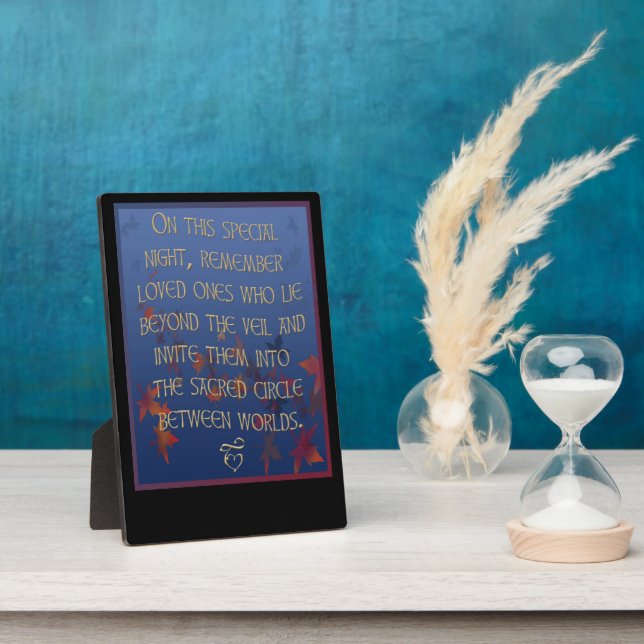 On this special
night, remember
loved ones who lie
beyond the veil and
invite them into
the sacred circle
between worlds.